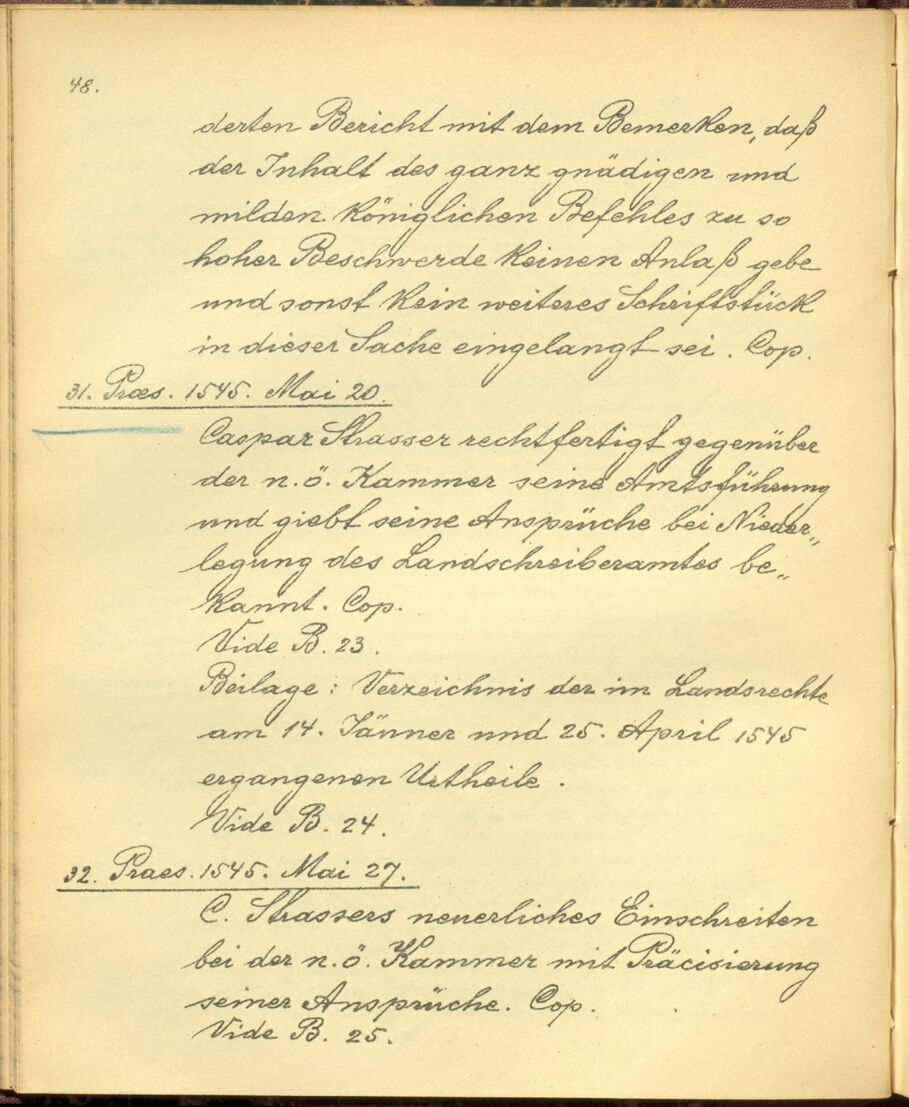 48.
derten Bericht mit dem Bemerken, daß
der Inhalt des ganz gnädigen und
milden Königlichen Befehles zu so
hoher Beschwerde keinen Anlaß gebe
und sonst kein weiteres Schriftstück
in dieser Sache eingelangt sei. Cop.
31. Præs. 1545. Mai 20.
Caspar Strasser rechtfertigt gegenüber
der n. ö. Kammer seine Amtsführung
und giebt seine Ansprüche bei Nieder„
legung des Landschreiberamtes be„
kannt. Cop.
Vide B. 23.
Beilage: Verzeichnis der im Landsrechte
am 14. Jänner und 25. April 1545
ergangenen Urtheile.
Vide B. 24.
32. Praes. 1545. Mai 27.
C. Strassers neuerliches Einschreiten
bei der n. ö. Kammer mit Präcisierung
seiner Ansprüche. Cop.
Vide B. 25.